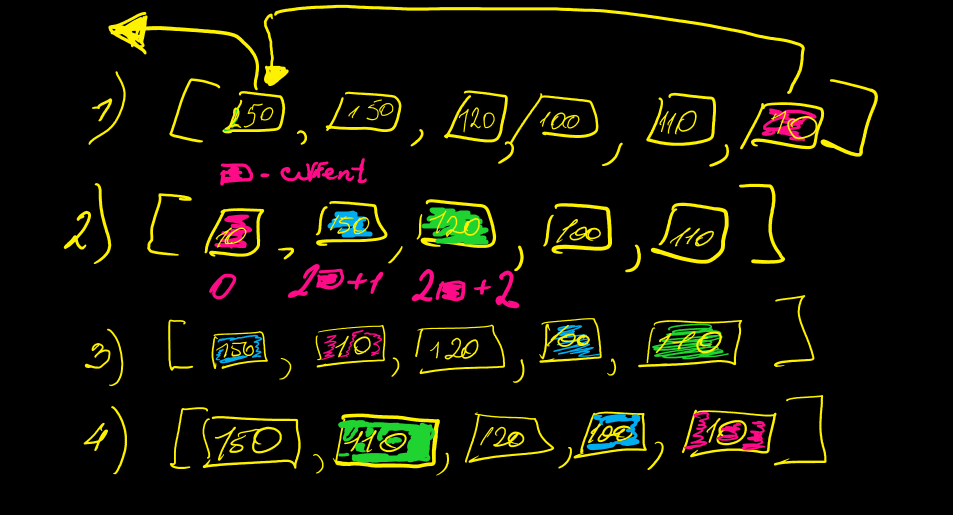 1) [ 250 , 150 , 120 , 100 , 110 , 10 ]
□ - current
2) [ 10 , 150 , 120 , 100 , 110 ]
0 2□+1 2□+2
3) [ 150 , 10 , 120 , 100 , 110 ]
4) [ 150 , 110 , 120 , 100 , 10 ]